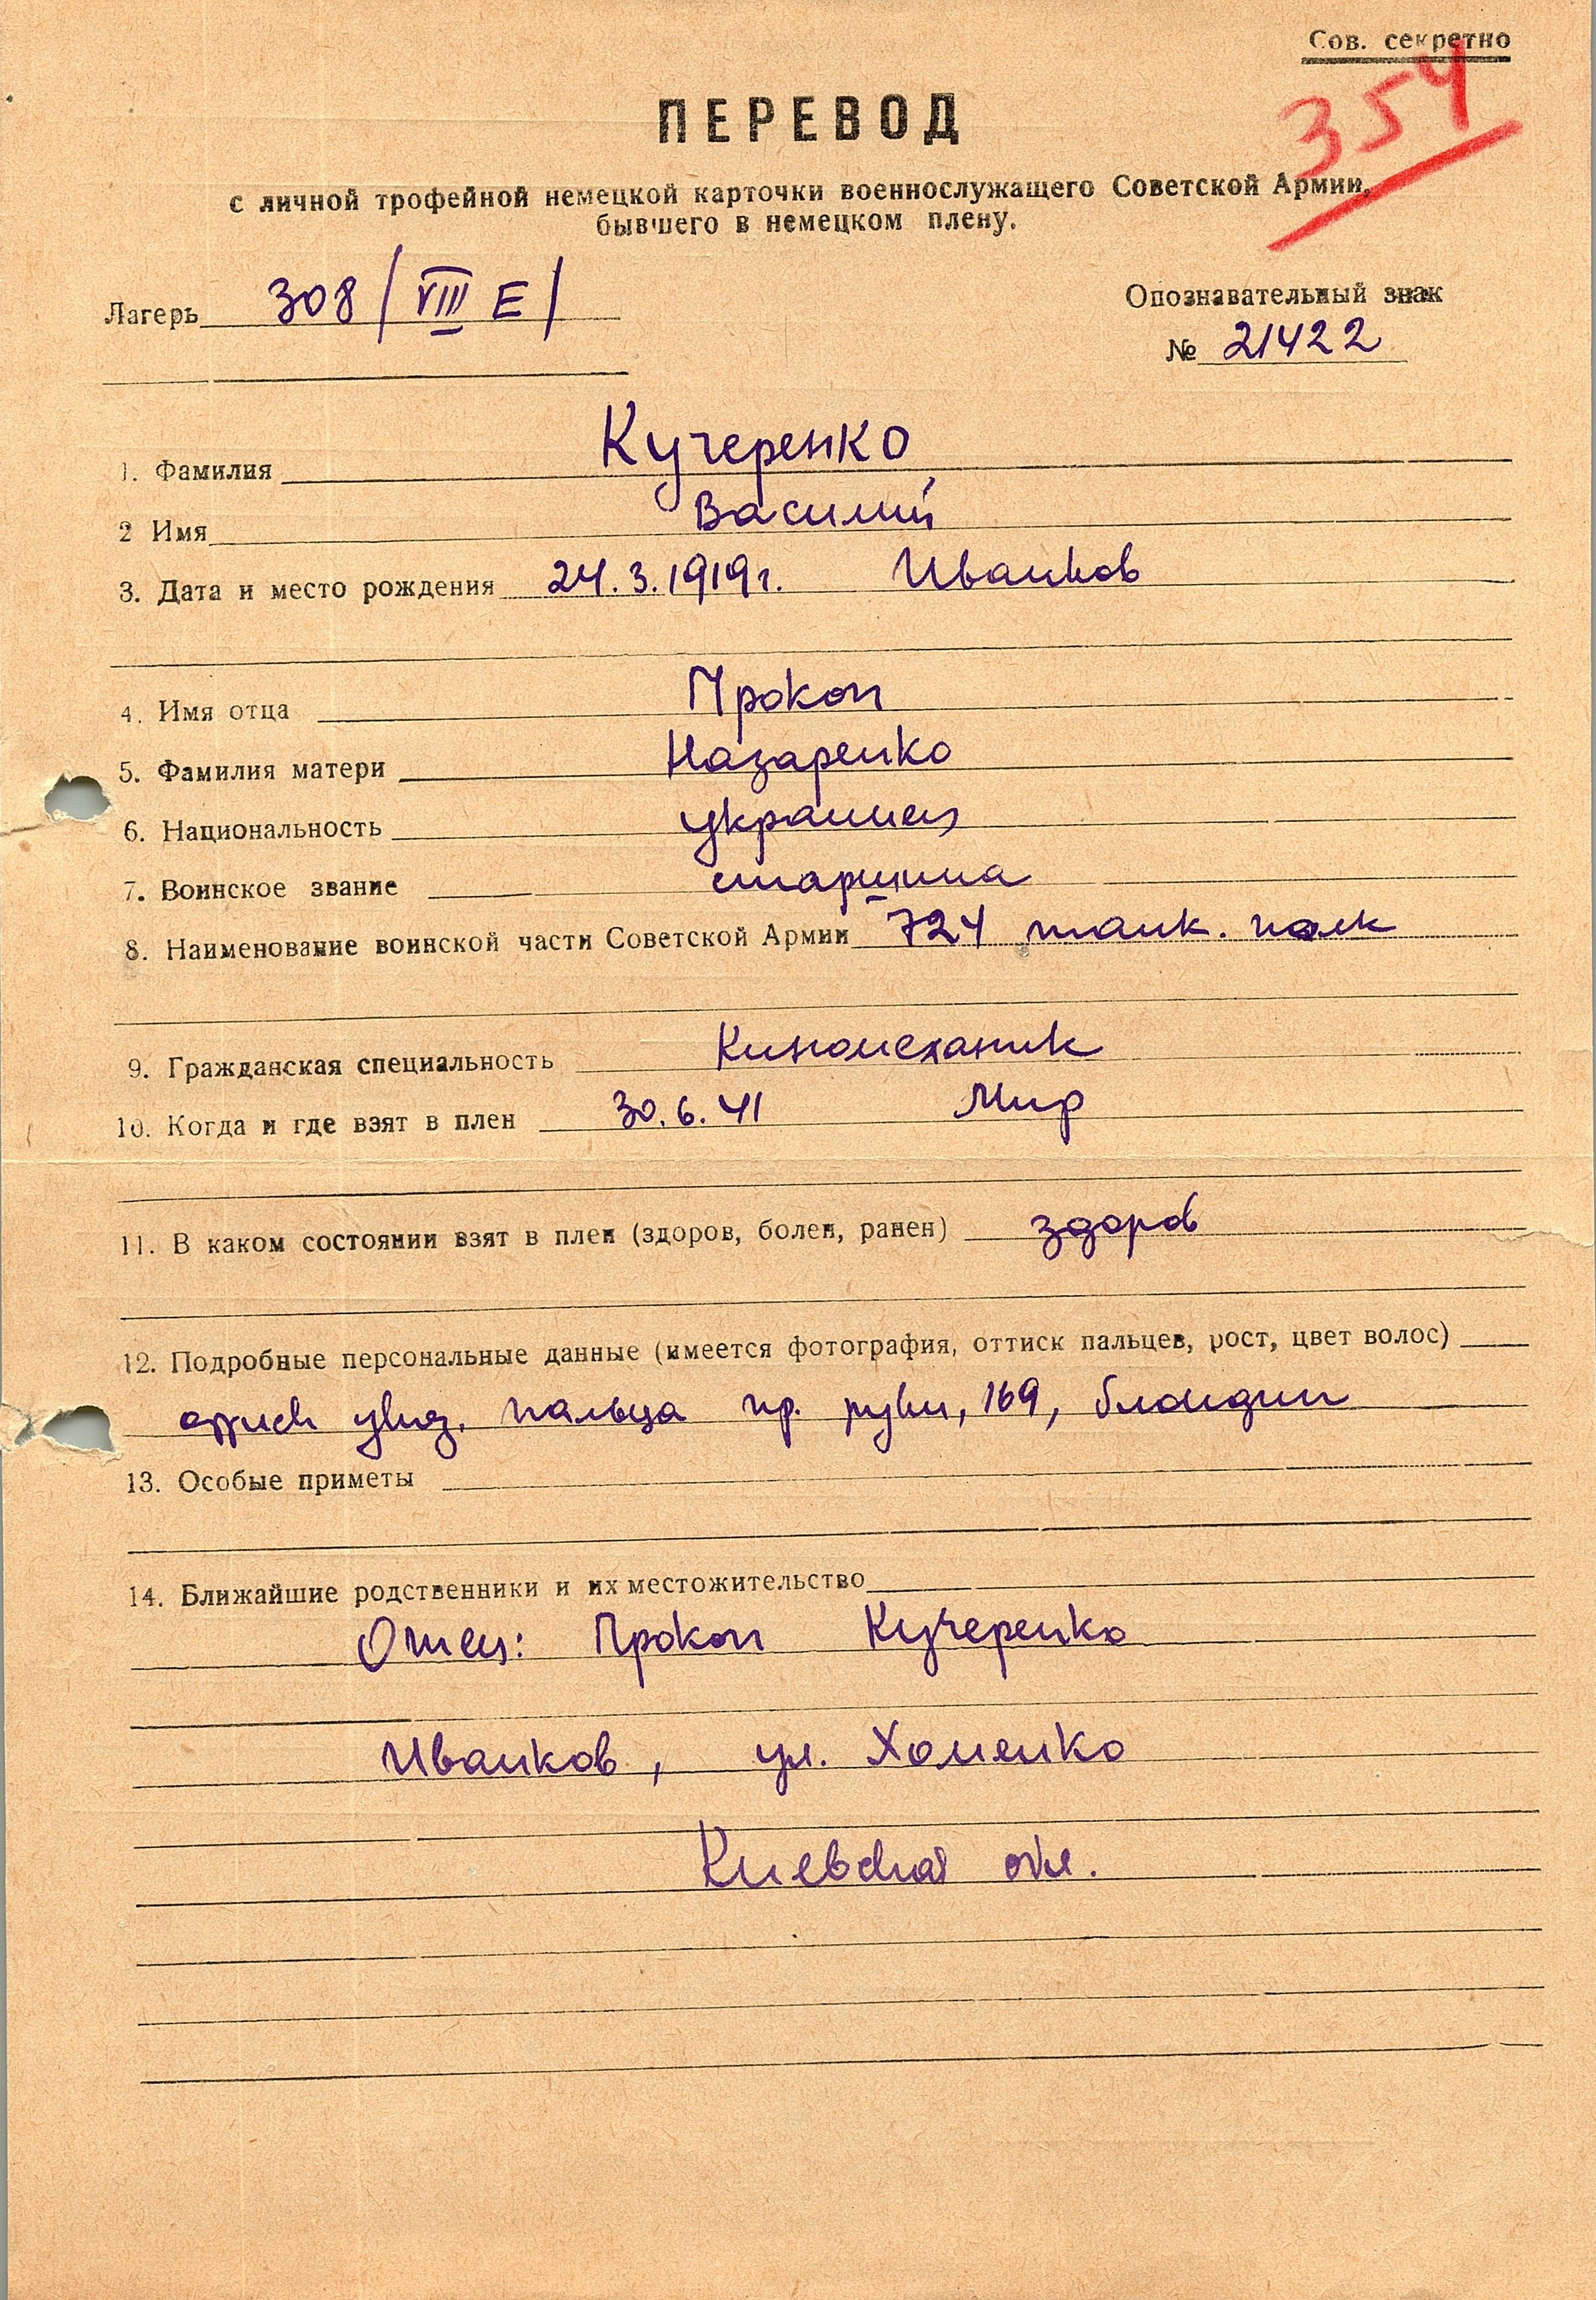 Сов. секретно
354
ПЕРЕВОД
с личной трофейной немецкой карточки военнослужащего Советской Армии,
бывшего в немецком плену.
Лагерь 308 / VIII E /
Опознавательный знак
№ 21422
1. Фамилия Кучеренко
2 Имя Василий
3. Дата и место рождения 24.3.1919г. Иванков
4. Имя отца Прокоп
5. Фамилия матери Назаренко
6. Национальность украинец
7. Воинское звание старшина
8. Наименование воинской части Советской Армии 724 танк. полк
9. Гражданская специальность Киномеханик
10. Когда и где взят в плен 30.6.41 Мир
11. В каком состоянии взят в плен (здоров, болен, ранен) здоров
12. Подробные персональные данные (имеется фотография, оттиск пальцев, рост, цвет волос)
пальца пр. руки, 169, блондин
13. Особые приметы
14. Ближайшие родственники и их местожительство
Отец: Прокоп Кучеренко
Иванков, ул. Хоменко
Киевская обл.